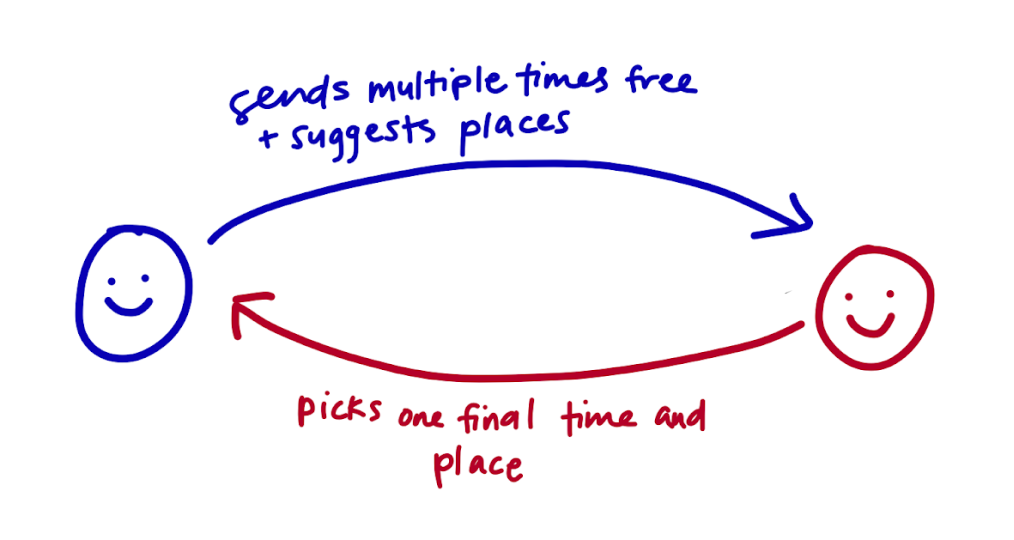 sends multiple times free
+ suggests places
picks one final time and
place